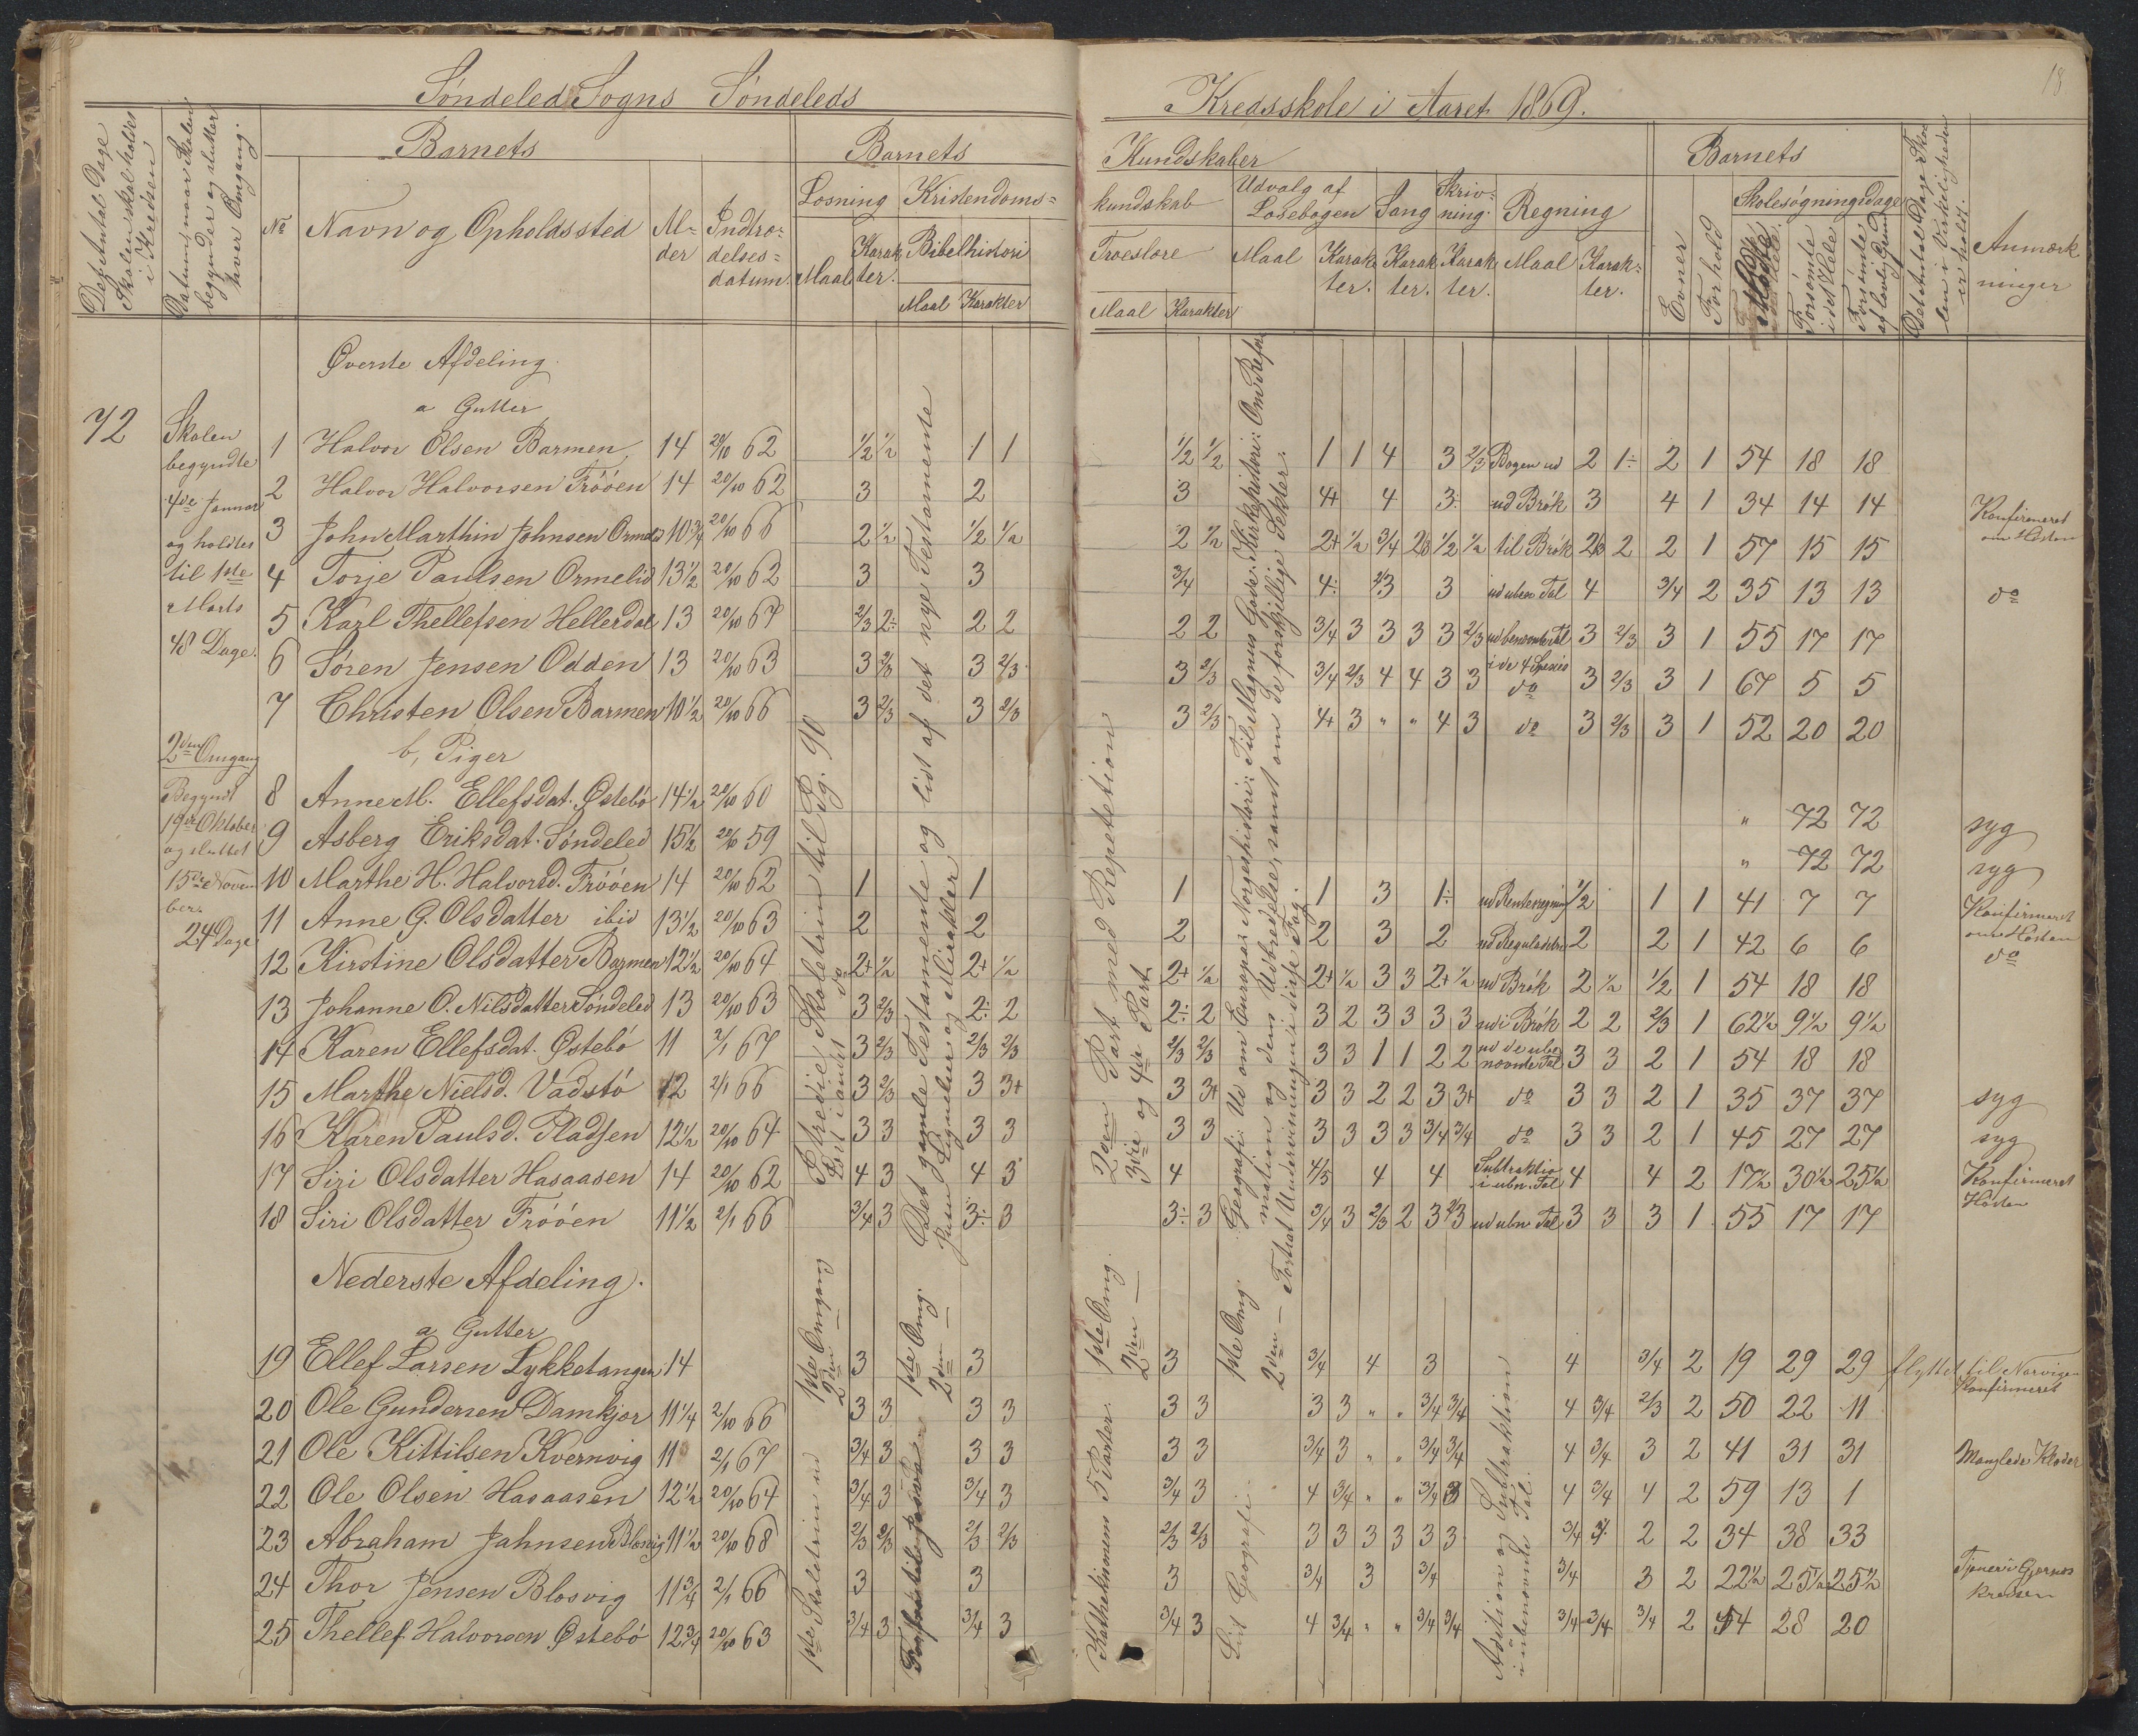 Söndeled Sogns Söndeleds Kredsskole i Aaret 1869.
18
Det Antal Dage Skolen skal holdes i Kredsen
Datum naar Skolen begynder og slutter hver Omgang.
Barnets
No
Navn og Opholdssted
Al-der
Indtræ-delses-datum.
Barnets Kundskaber
Læsning
Maal
Karak ter.
Kristendoms-kundskab
Bibelhistori
Maal Karakter
Troeslære
Maal Karakter
Udvalg af Læsebogen
Maal Karak ter.
Sang
Karak ter.
Skriv-ning.
Karak ter.
Regning
Maal Karak-ter.
Barnets
Evner
Forhold
Skolesøgningsdage
Mødte
Forsömte i det Hele
Forsömte af lovlig Grund
Det Antal Dage Sko len i Virkeligheden er holdt.
Anmærk ninger
72
Skolen
begyndte
4de Januar
og holdtes
til 1ste
Marts
48 Dage.
2den Omgang
Begyndt
19de Oktober
og sluttet
15de Novem
ber.
24 Dage
Øverste Afdeling
a Gutter
1 Halvor Olsen Barmen, 14 20/10 62 1/2 1/2 1 1 1/2 1/2 1 1 4 3 2/3 Bogen ud 2 1÷ 2 1 54 18 18
2 Halvor Halvorsen Fröóen 14 20/10 62 3 2 3 4+ 4 3÷ ud Brök 3 4 1 34 14 14 Konfirmeret om Hösten
3 John Marthin Johnsen Ormelid 10 3/4 20/10 66 2 1/2 1/2 1/2 2 1/2 2+ 1/2 3/4 1/2 1/2 til Brök 2 2 1 57 15 15
4 Torje Paulsen Ormelid 13 1/2 20/10 62 3 3 3/4 4÷ 3 3 ud uben Tal 4 3/4 2 35 13 13 do
5 Karl Thellefsen Hellerdal 13 20/10 67 2/3 2÷ 2 2 2 2 3/4 3 3 3 3 2/3 ud benævnte Tal i de 4 Species 3 2/3 3 1 55 17 17
6 Søren Jensen Odden 13 20/10 63 3 2/3 3 2/3 3 2/3 3/4 2/3 4 4 3 3 do 3 2/3 3 1 67 5 5
7 Christen Olsen Barmen 10 1/2 20/10 66 3 2/3 3 2/3 3 2/3 4+ 3 " " 4 3 do 3 2/3 3 1 52 20 20
b, Piger
8 Anne M. Ellefsdat. Østebö 14 1/2 20/10 60 " 72 72 syg
9 Asberg Eriksdat. Söndeled 15 1/2 20/10 59 " 72 72 syg
10 Marthe H. Halvorsd. Fröóen 14 20/10 62 1 1 1 1 3 1÷ ud Renteregning 1/2 1 1 41 7 7 Konfirmeret om Hösten
11 Anne G. Olsdatter ibid 13 1/2 20/10 63 2 2 2 2 3 2 2 2 1 42 6 6 do
12 Kirstine Olsdatter Barmen 12 1/2 20/10 64 2+ 1/2 2+ 1/2 2+ 1/2 2+ 1/2 3 3 2+ 1/2 ud Brök 2 1/2 1/2 1 54 18 18
13 Johanne O. Nilsdatter Söndeled 13 20/10 63 3 2/3 2÷ 2 2÷ 2 3 2 3 3 3 3 ud i Brök 2 2 2/3 1 62 1/2 9 1/2 9 1/2
14 Karen Ellefsdat. Østebö 11 2/1 67 3 2/3 2/3 2/3 2/3 2/3 3 3 1 1 2 2 ud de uben nævnte Tal 3 3 2 1 54 18 18
15 Marthe Nielsd. Vadstö 12 2/1 66 3 2/3 3 3+ 3 3+ 3 3 2 2 3 3+ do 3 3 2 1 35 37 37 syg
16 Karen Paulsd. Pladsen 12 1/2 20/10 64 3 3 3 3 3 3 3 3 3 3 3/4 3/4 do 3 3 2 1 45 27 27 syg
17 Siri Olsdatter Hasaasen 14 20/10 62 4 3 4 3 4 4/5 4 4 Subtraktio i ubn. Tal 4 4 2 17 1/2 30 1/2 25 1/2 Konfirmeret Hösten
18 Siri Olsdatter Fröóen 11 1/2 2/1 66 3/4 3 3÷ 3 3÷ 3 3/4 3 2/3 2 3 2/3 ud ubn Tal 3 3 3 1 55 17 17
Nederste Afdeling.
a Gutter
19 Ellef Larsen Lykketangen 14 3 3 3 3/4 4 3 4 3/4 2 19 29 29 flyttet til Narvigen Konfirmeret
20 Ole Gundersen Damkjær 11 1/4 2/10 66 3 3 3 3 3 3 3 3 " " 3/4 3/4 4 3/4 2/3 2 50 22 11
21 Ole Kittilsen Kvernvig 11 2/1 67 3/4 3 3 3 3 3 3/4 3 " " 3/4 3/4 4 3/4 3 2 41 31 31 Manglede Klæder
22 Ole Olsen Hasaasen 12 1/2 20/10 64 3/4 3 3/4 3 3/4 3 4 3/4 " " 3/4 3 4 3/4 4 2 59 13 1
23 Abraham Jahnsen Blosvig 11 1/2 20/10 68 2/3 2/3 2/3 2/3 2/3 2/3 3 3 3 3 3 3 3/4 2 2 34 38 33
24 Thor Jensen Blosvig 11 3/4 2/1 66 3 3 3 3/4 3 3/4 3/4 3 2 22 1/2 25 1/2 25 1/2 Tjener i Gjernes kredsen
25 Thellef Halvorsen Østebö 12 3/4 20/10 63 3/4 3 3/4 3 3/4 3 4 3/4 " " 3/4 3/4 3/4 3/4 3/4 2 44 28 20
1ste Omgang Et tredie Skoletrin til Pg. 90
2den — Fort i andet do
1ste Omg. Det gamle Testamente og lidt af det nye Testamente
2den — Jesu Lignelser og Mirakler
1ste Omg. 2den Part med Repetetion
2den — 3die og 4de Part.
1ste Omg. Geografi: Ud om Europa: Norgeshistori: Til Magnus Gode: Kirkehistori: Om Refor mation og dens Udbredelse, samt om de forskjellige Sekter.
2den — Fortsat Undervisningen i disse Fag.
1ste Skoletrin ud
Kathekismens 5 Parter.
Lidt Geografi.
Adition og Subtraktion i ubenævnte Tal.